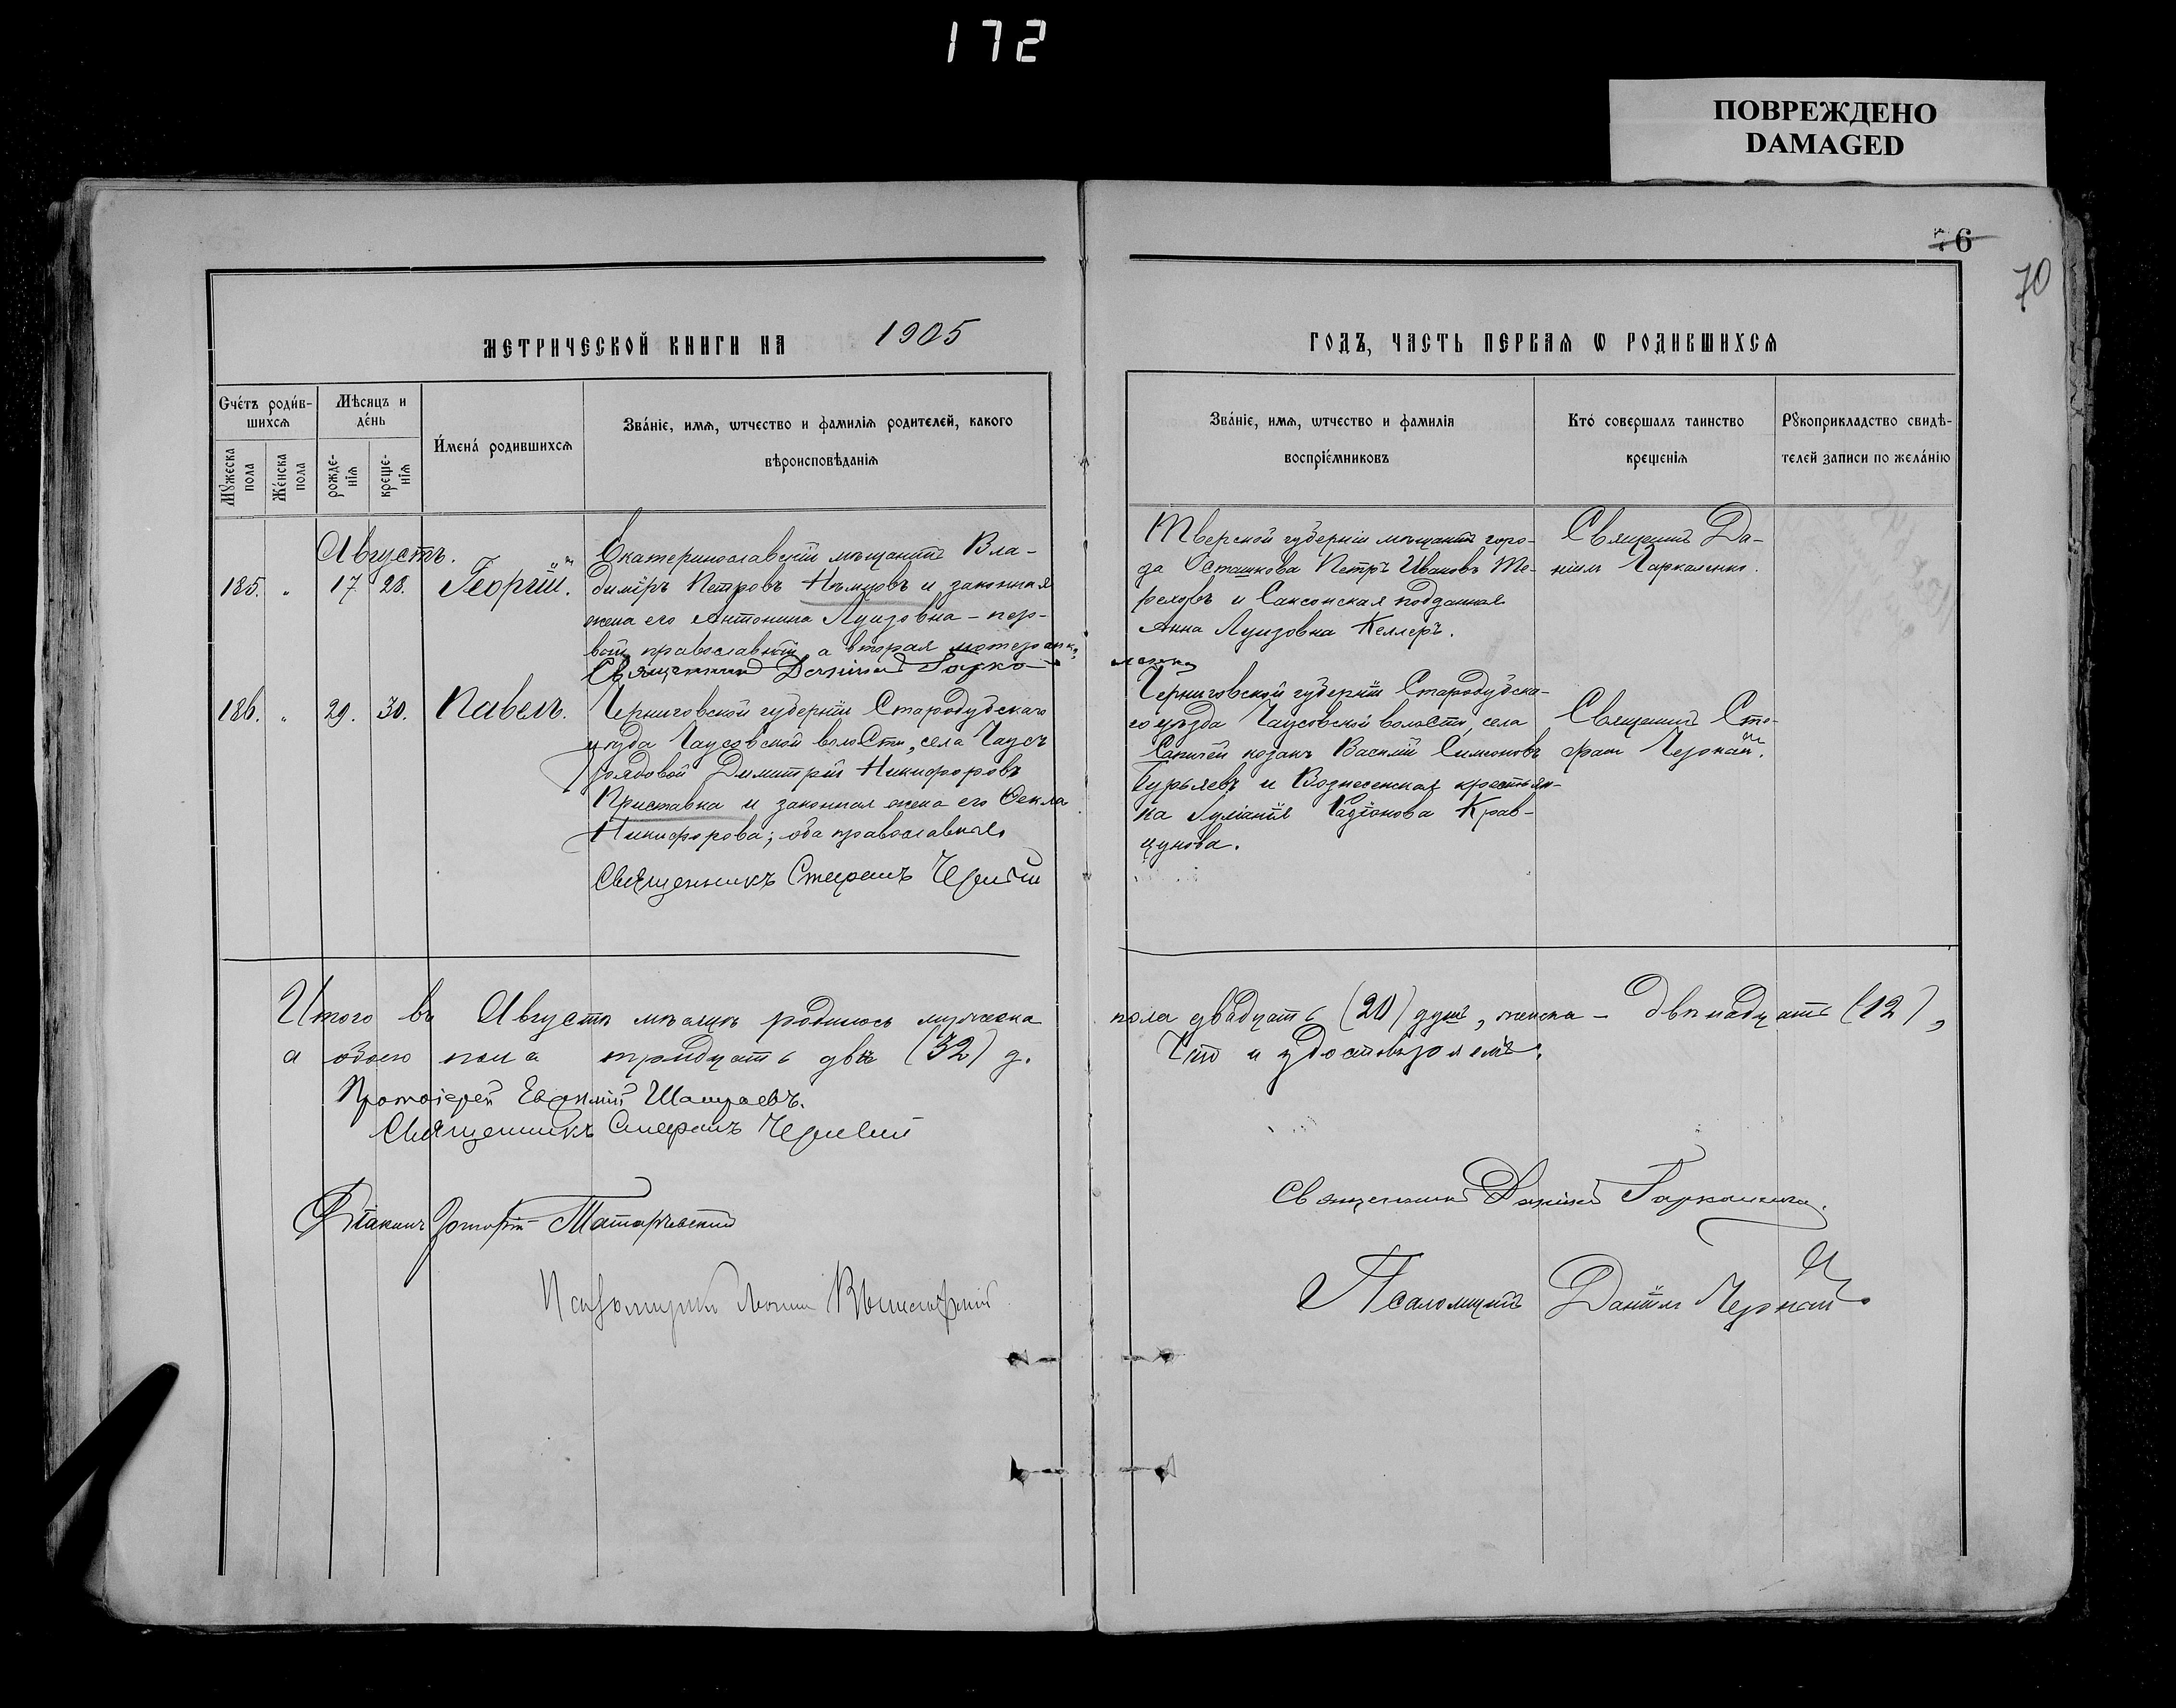 172
ПОВРЕЖДЕНО
DAMAGED
76
70
МЕТРИЧЕСКОЙ КНИГИ НА 1905
ГОДЪ, ЧАСТЬ ПЕРВАѦ Ѡ РОДИВШИХСѦ
Счéтъ роди́в-
шихсѧ
Мѣсяцъ и
дéнь
Мꙋжеска
пола
Жéнска
пола
рожде-
нїѧ
креще-
нїѧ
И҆мена́ родившихсѧ
Зва́нїе, имѧ, ѡтчество и фамилїѧ родителей, какого
вѣроисповѣданїѧ
Зва́нїе, имѧ, ѡтчество и фамилїѧ
воспрїе́мниковъ
Кто́ совершалъ таинство
крещенїѧ
Рꙋкоприкладство свидѣ-
телей записи по жела́нїю
Августъ.
185. " 17 28. Георгій.
Екатеринославскій мѣщанинъ Вла-
димiръ Петровъ Нѣмцовъ и законная
жена его Антонина Луизовна - пер-
вый православный, а вторая лютеранка
Священникъ Даніилъ Гарка-
Тверской губерніи мѣщанинъ горо-
да Осташкова Петръ Ивановъ Те-
реховъ и Саксонская подданная
Анна Луизовна Келлеръ.
Священникъ Да-
ніилъ Гаркаленко.
ленко
186. " 29. 30. Павелъ.
Черниговской губерніи Стародубскаго
уѣзда Чаусовской волости, села Чаусъ
рядовой Димитрій Никифоровъ
Приставка и законная жена его Ѳекла
Никифорова; оба православные
Священникъ Стефанъ Чернай
Черниговской губерніи Стародубска-
го уѣзда Чаусовской волости, села
козакъ Василій Симоновъ
Гурьяевъ и Вознесенская крестьян-
ка Іуліанія Родіонова Крав-
цунова.
Священникъ Сте-
фанъ Чернай.
Итого въ Августѣ мѣсяцѣ родилось мужеска
пола двадцать (20) душъ, женска - двѣнадцать (12),
а обоего пола тридцать двѣ (32) д.
Что и удостовѣряемъ.
Протоіерей Евфимій
Священникъ Стефанъ Чернай
Священникъ Даніилъ Гаркаленко.
Діаконъ
Псаломщикъ
Псаломщикъ Даніилъ Чернай.